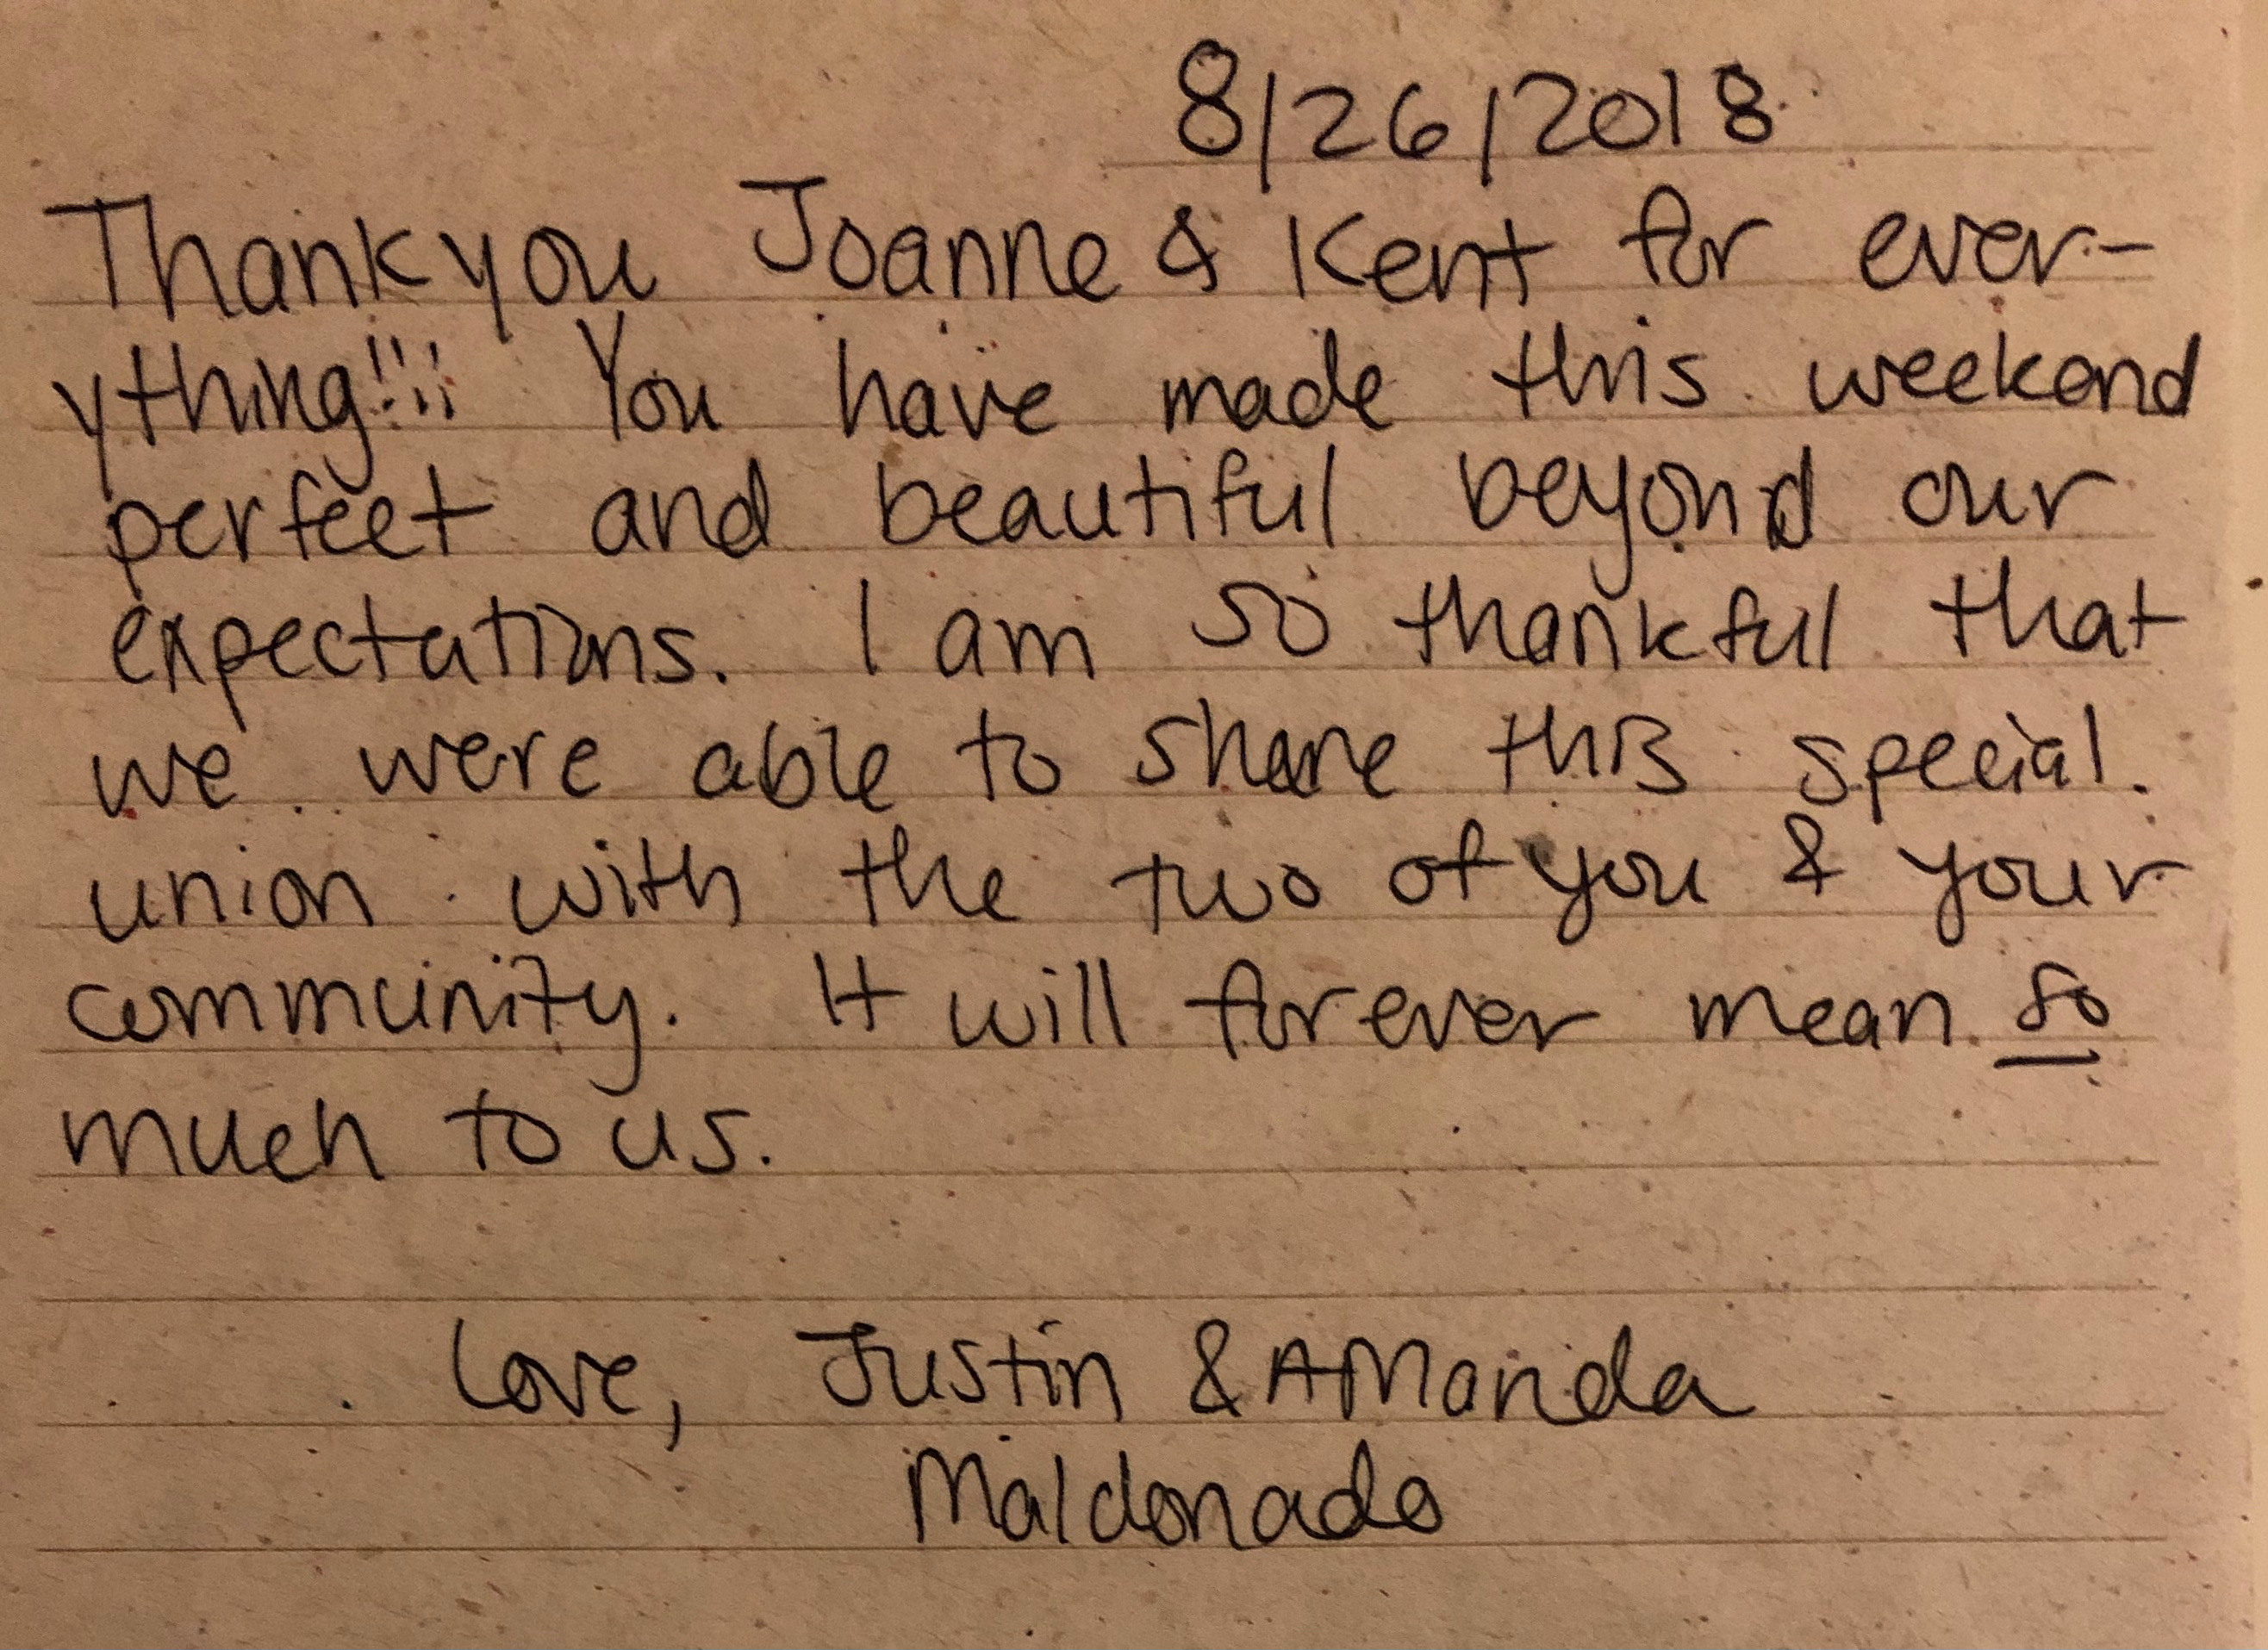 8/26/2018
Thank you Joanne & Kent for ever-
ything!!!! You have made this weekend
perfect and beautiful beyond our
expectations. I am so thankful that
we were able to share this special
union with the two of you & your
community. It will forever mean so
much to us.
Love, Justin & AManda
Maldonado